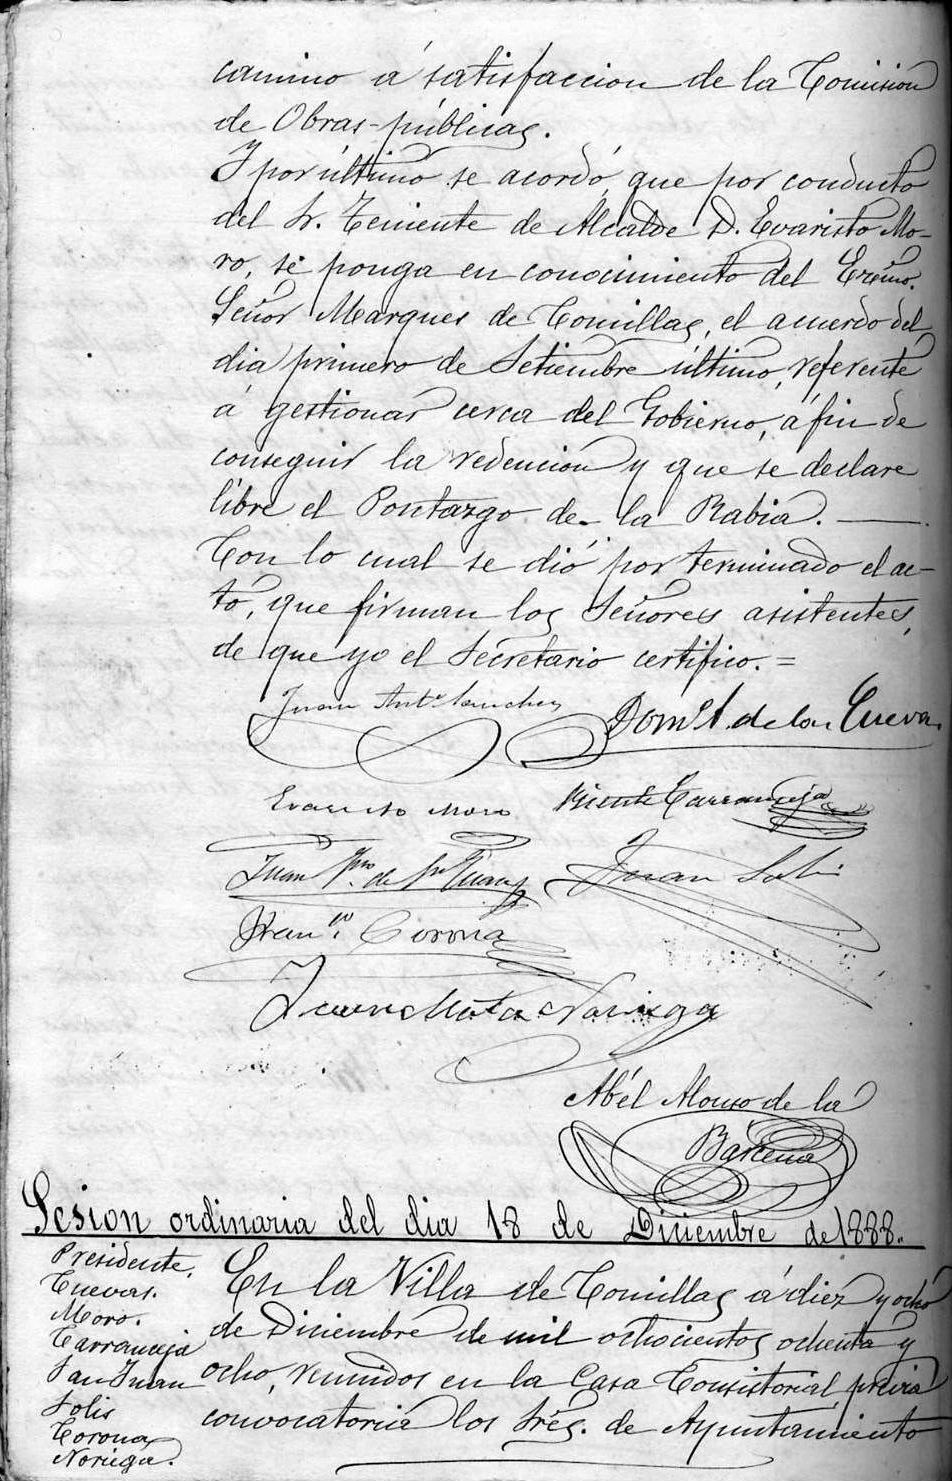 camino á satisfaccion de la Comision
de Obras-públicas.
Y por último se acordó, que por conducto
del Sr. Teniente de Alcalde D. Evaristo Mo-
ro, se ponga en conocimiento del Excmo.
Señor Marques de Comillas, el acuerdo del
dia primero de Setiembre último, referente
á gestionar cerca del Gobierno, á fin de
conseguir la redencion y que se declare
libre el Pontazgo de la Rabia.
Con lo cual se dió por terminado el ac-
to, que firman los Señores asistentes,
de que yo el Secretario certifico. =
Juan Anto. Sanchez
Domo. A. de las Cuevas
Evaristo Moro
Vicente Carranceja
Juan de Sn. Juan
Juan Solis
Franco. Corona
Juan Mata Noriega
Abél Alonso de la
Bárcena
Sesion ordinaria del dia 18 de Diciembre de 1888.
Presidente.
Cuevas.
Moro.
Carranceja
San Juan
Solis
Corona
Noriega.
En la Villa de Comillas á diez y ocho
de Diciembre de mil ochocientos ochenta y
ocho, reunidos en la Casa Consistorial, prévia
convocatoria los Sres. de Ayuntamiento